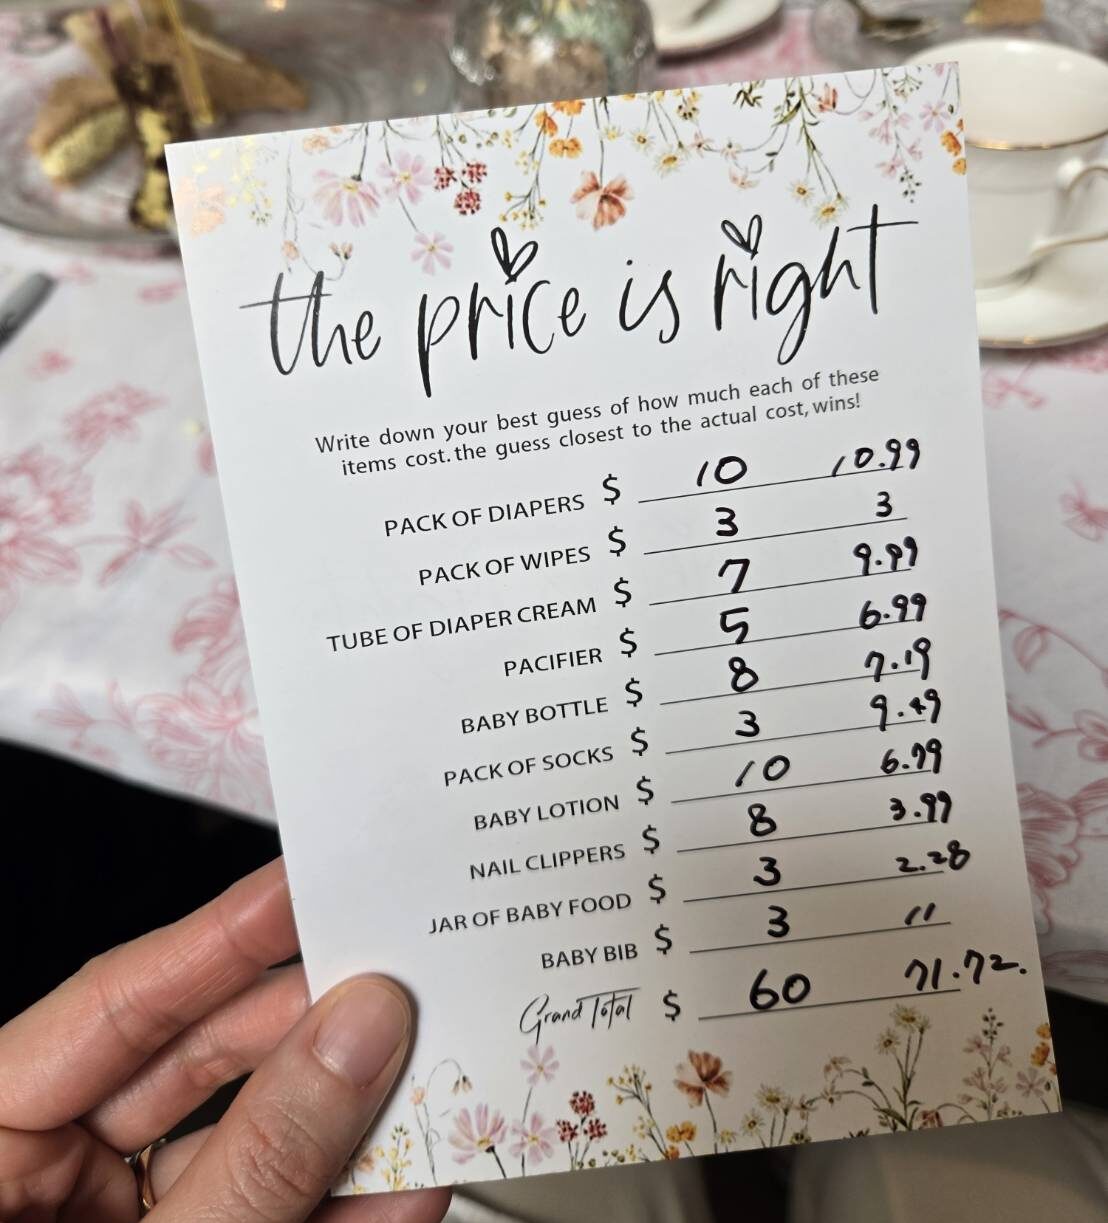 the price is right
Write down your best guess of how much each of these
items cost. the guess closest to the actual cost, wins!
PACK OF DIAPERS $ 10 10.99
PACK OF WIPES $ 3 3
TUBE OF DIAPER CREAM $ 7 9.99
PACIFIER $ 5 6.99
BABY BOTTLE $ 8 7.19
PACK OF SOCKS $ 3 9.49
BABY LOTION $ 10 6.79
NAIL CLIPPERS $ 8 3.99
JAR OF BABY FOOD $ 3 2.28
BABY BIB $ 3 11
Grand Total $ 60 71.72.